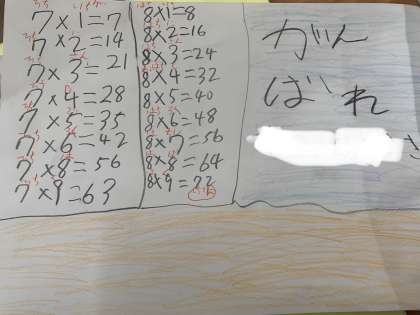 7×1=7
7×2=14
7×3=21
7×4=28
7×5=35
7×6=42
7×8=56
7×9=63
8×1=8
8×2=16
8×3=24
8×4=32
8×5=40
8×6=48
8×7=56
8×8=64
8×9=72
がん
ばれ